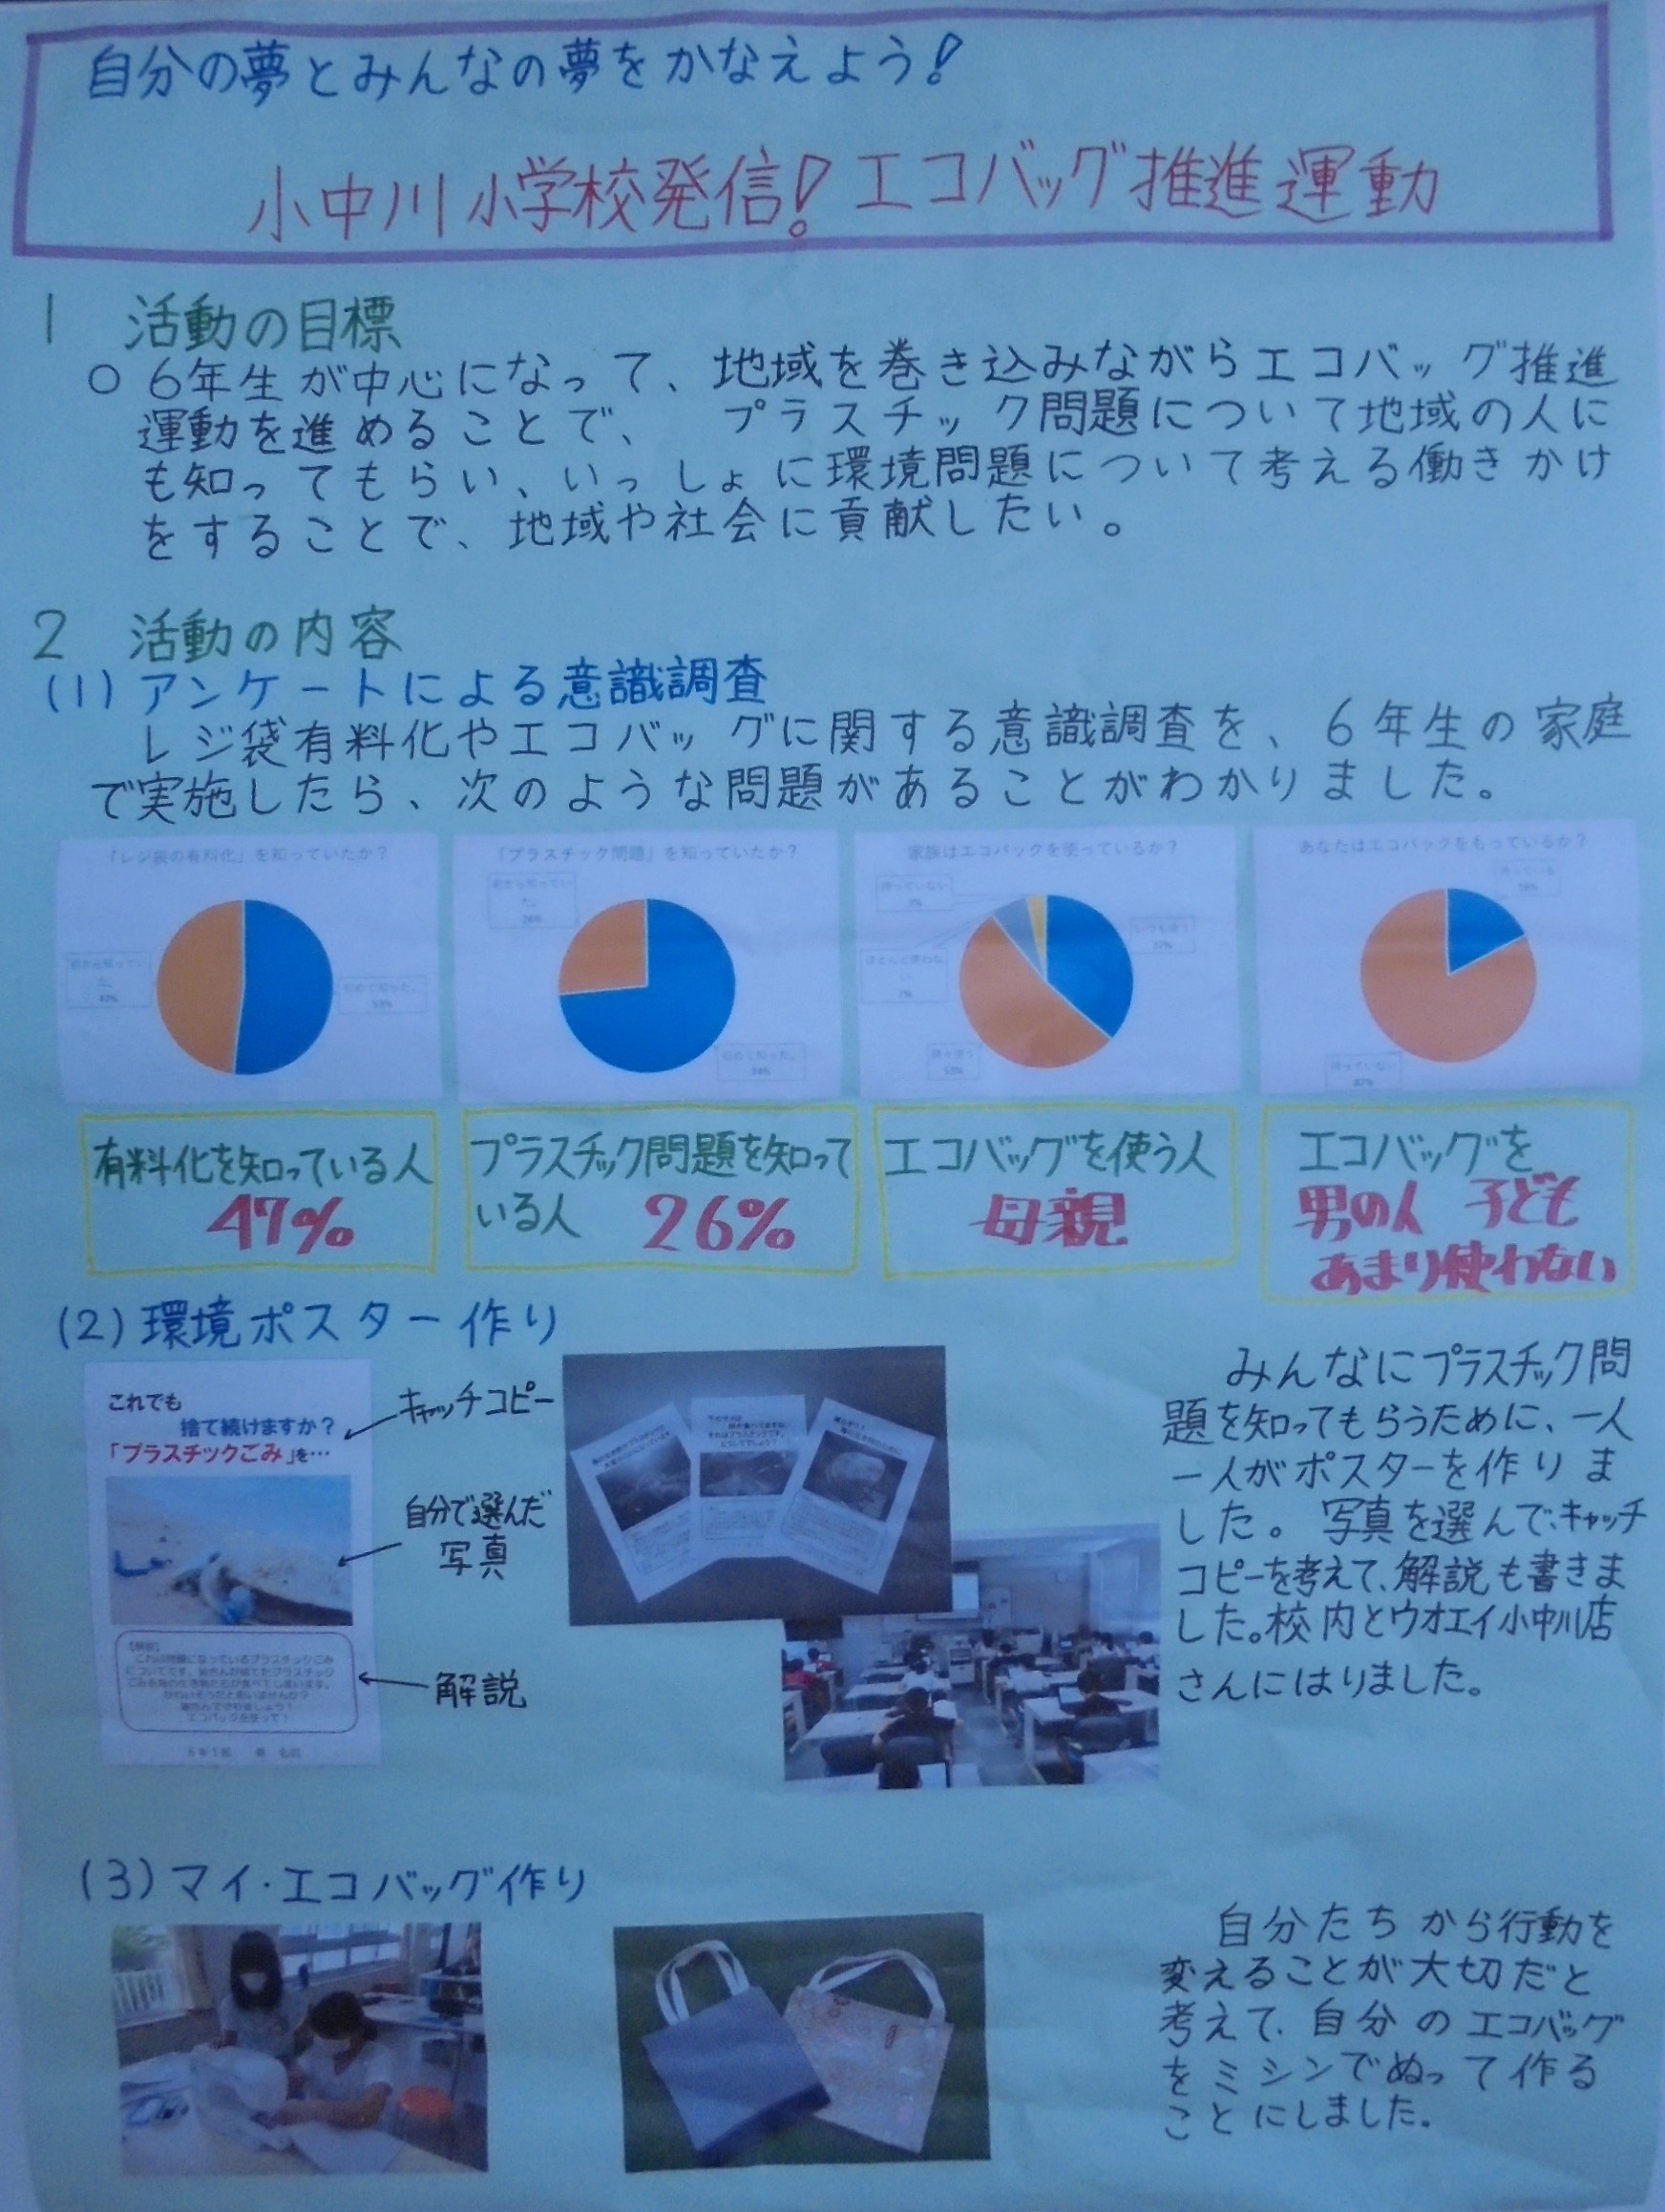 自分の夢とみんなの夢をかなえよう!
小中川小学校発信!エコバッグ推進運動
1 活動の目標
○ 6年生が中心になって、地域を巻き込みながらエコバッグ推進
運動を進めることで、プラスチック問題について地域の人に
も知ってもらい、いっしょに環境問題について考える働きかけ
をすることで、地域や社会に貢献したい。
2 活動の内容
(1)アンケートによる意識調査
レジ袋有料化やエコバッグに関する意識調査を、6年生の家庭
で実施したら、次のような問題があることがわかりました。
「レジ袋の有料化」を知っていたか?
前から知ってい
た。
47%
初めて知った。
53%
「プラスチック問題」を知っていたか?
前から知ってい
た。
26%
初めて知った。
74%
家族はエコバックを使っているか?
持っていない
3%
いつも使う
37%
ほとんど使わな
い
7%
時々使う
53%
あなたはエコバックをもっているか?
持っている
18%
持っていない
82%
有料化を知っている人
47%
プラスチック問題を知って
いる人 26%
エコバッグを使う人
母親
エコバッグを
男の人 子ども
あまり使わない
(2)環境ポスター作り
これでも
捨て続けますか?
「プラスチックごみ」を…
キャッチコピー
自分で選んだ
写真
【解説】
これは問題になっているプラスチックごみ
についてです。皆さんが捨てたプラスチック
ごみを海の生き物たちが食べてしまいます。
かわいそうだと思いませんか?
エコバックを使って!
解説
みんなにプラスチック問
題を知ってもらうために、一人
一人がポスターを作りま
した。写真を選んで、キャッチ
コピーを考えて、解説も書きま
した。校内とウオエイ小中川店
さんにはりました。
(3)マイ・エコバッグ作り
自分たちから行動を
変えることが大切だと
考えて、自分のエコバッグ
をミシンでぬって作る
ことにしました。